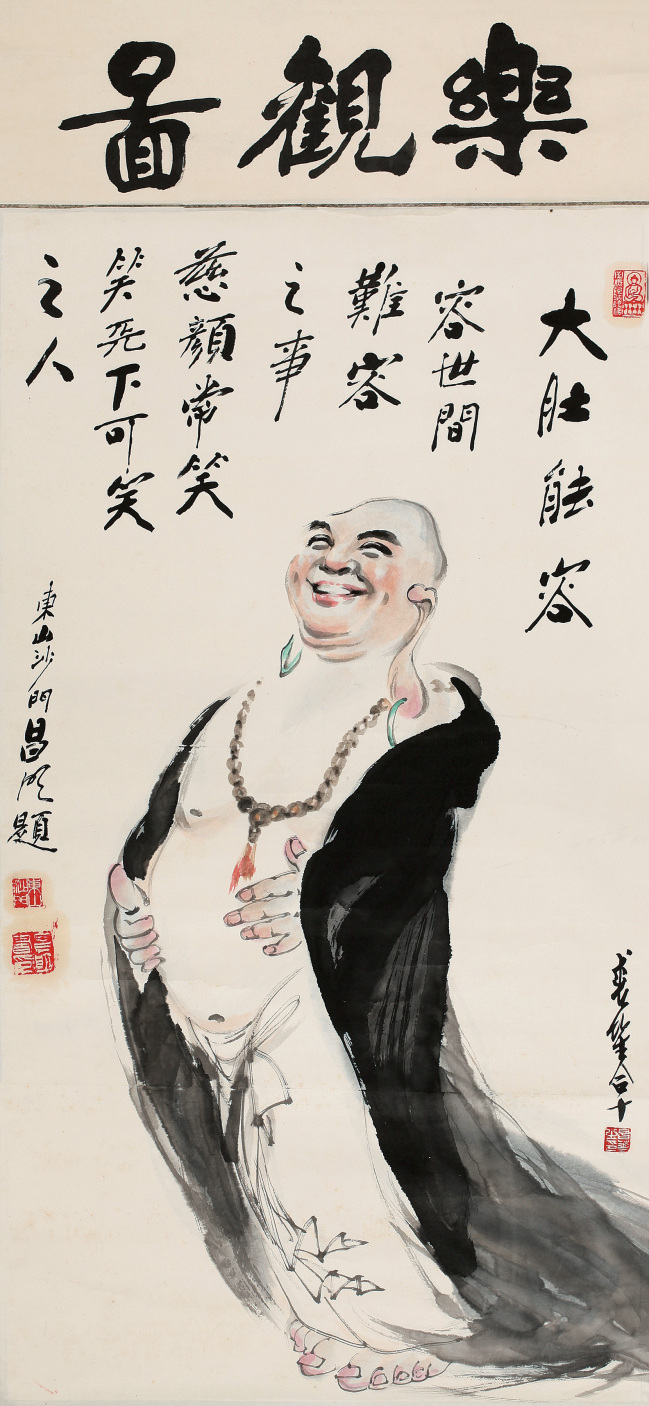 樂觀圖
大肚能容
容世間
難容
之事
慈顏常笑
笑天下可笑
之人
東山沙門昌明題